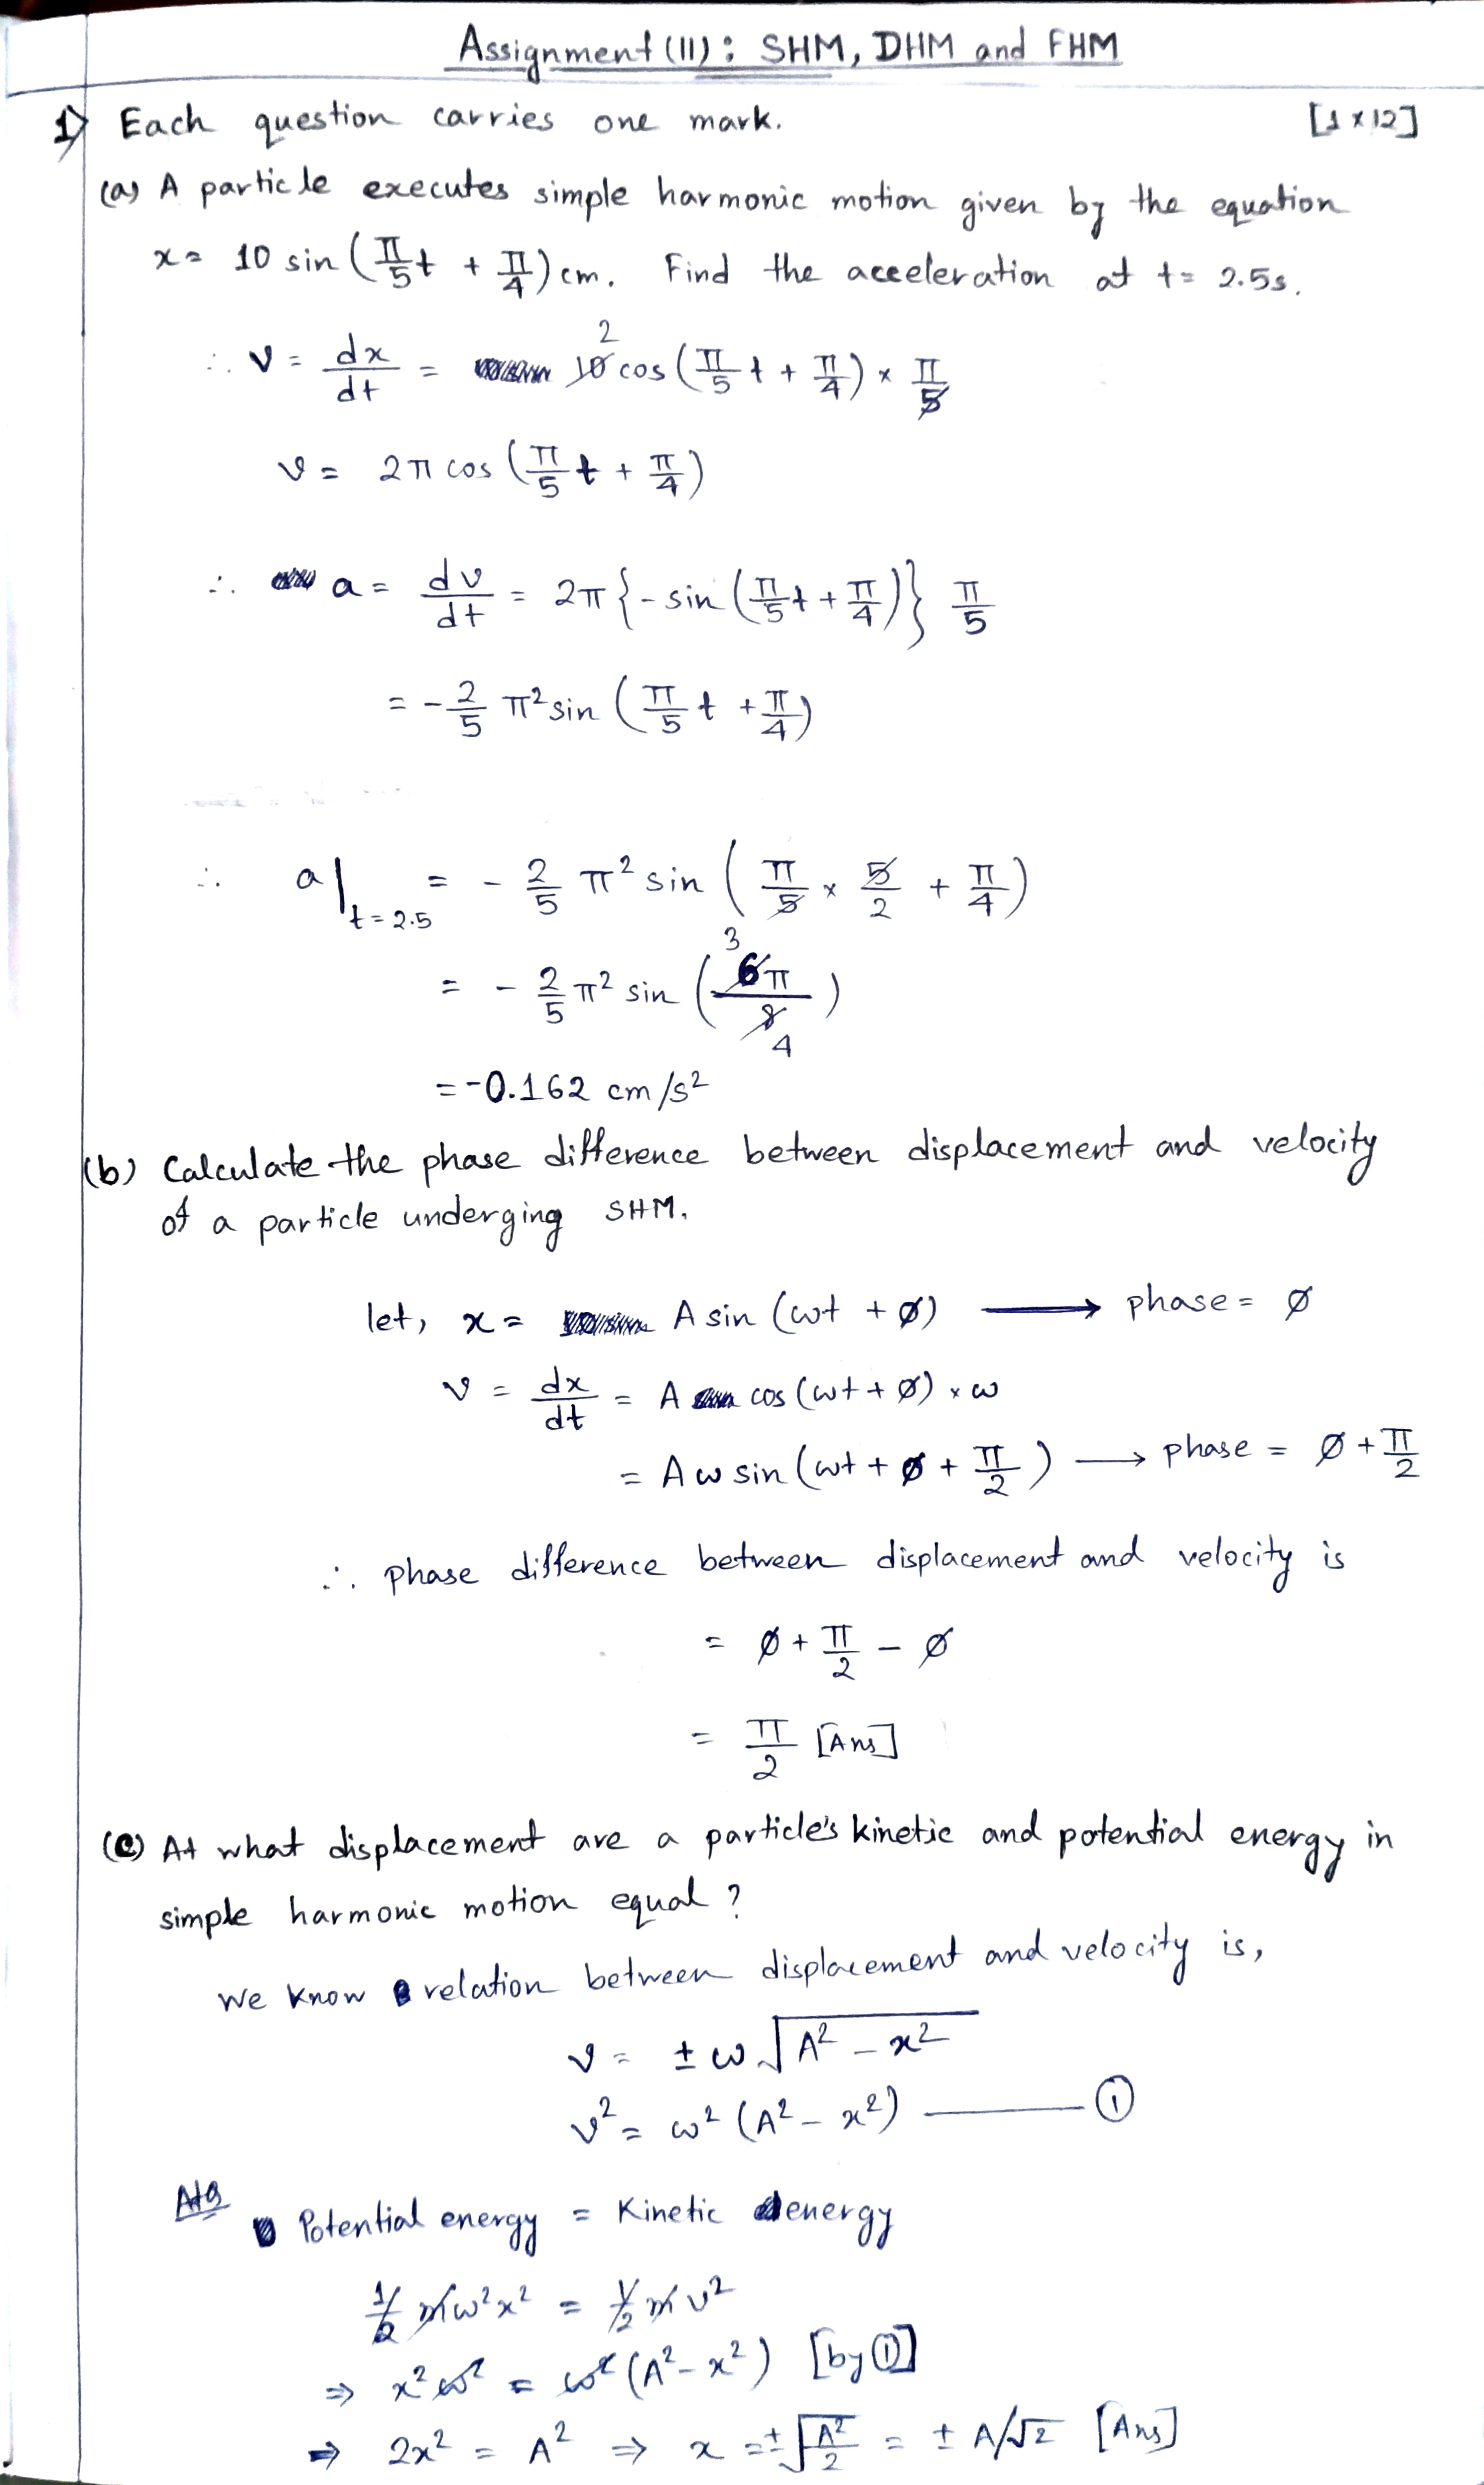 Assignment (II) : SHM, DHM and FHM
1) Each question carries one mark. [1 × 12]
(a) A particle executes simple harmonic motion given by the equation
x = 10 sin (π/5 t + π/4) cm. Find the acceleration at t = 2.5s.
∴ v = dx/dt = 10 2 cos (π/5 t + π/4) × π/5
v = 2π cos (π/5 t + π/4)
∴ a = dv/dt = 2π {- sin (π/5 t + π/4)} π/5
= - 2/5 π² sin (π/5 t + π/4)
∴ a|t = 2.5 = - 2/5 π² sin (π/5 × 5/2 + π/4)
= - 2/5 π² sin (6π/8) 3 4
= -0.162 cm/s²
(b) Calculate the phase difference between displacement and velocity
of a particle underging SHM.
let, x = A sin (ωt + ø) ⟶ phase = ø
v = dx/dt = A cos (ωt + ø) × ω
= Aω sin (ωt + ø + π/2) ⟶ phase = ø + π/2
∴ phase difference between displacement and velocity is
= ø + π/2 - ø
= π/2 [Ans]
(c) At what displacement are a particle's kinetic and potential energy in
simple harmonic motion equal ?
We know relation between displacement and velocity is,
v = ± ω √(A² - x²)
v² = ω² (A² - x²) ——— ①
AtQ
Potential energy = Kinetic energy
1/2 mω²x² = 1/2 mv²
⇒ x²ω² = ω² (A² - x²) [by ①]
⇒ 2x² = A² ⇒ x = ± √(A²/2) = ± A/√2 [Ans]